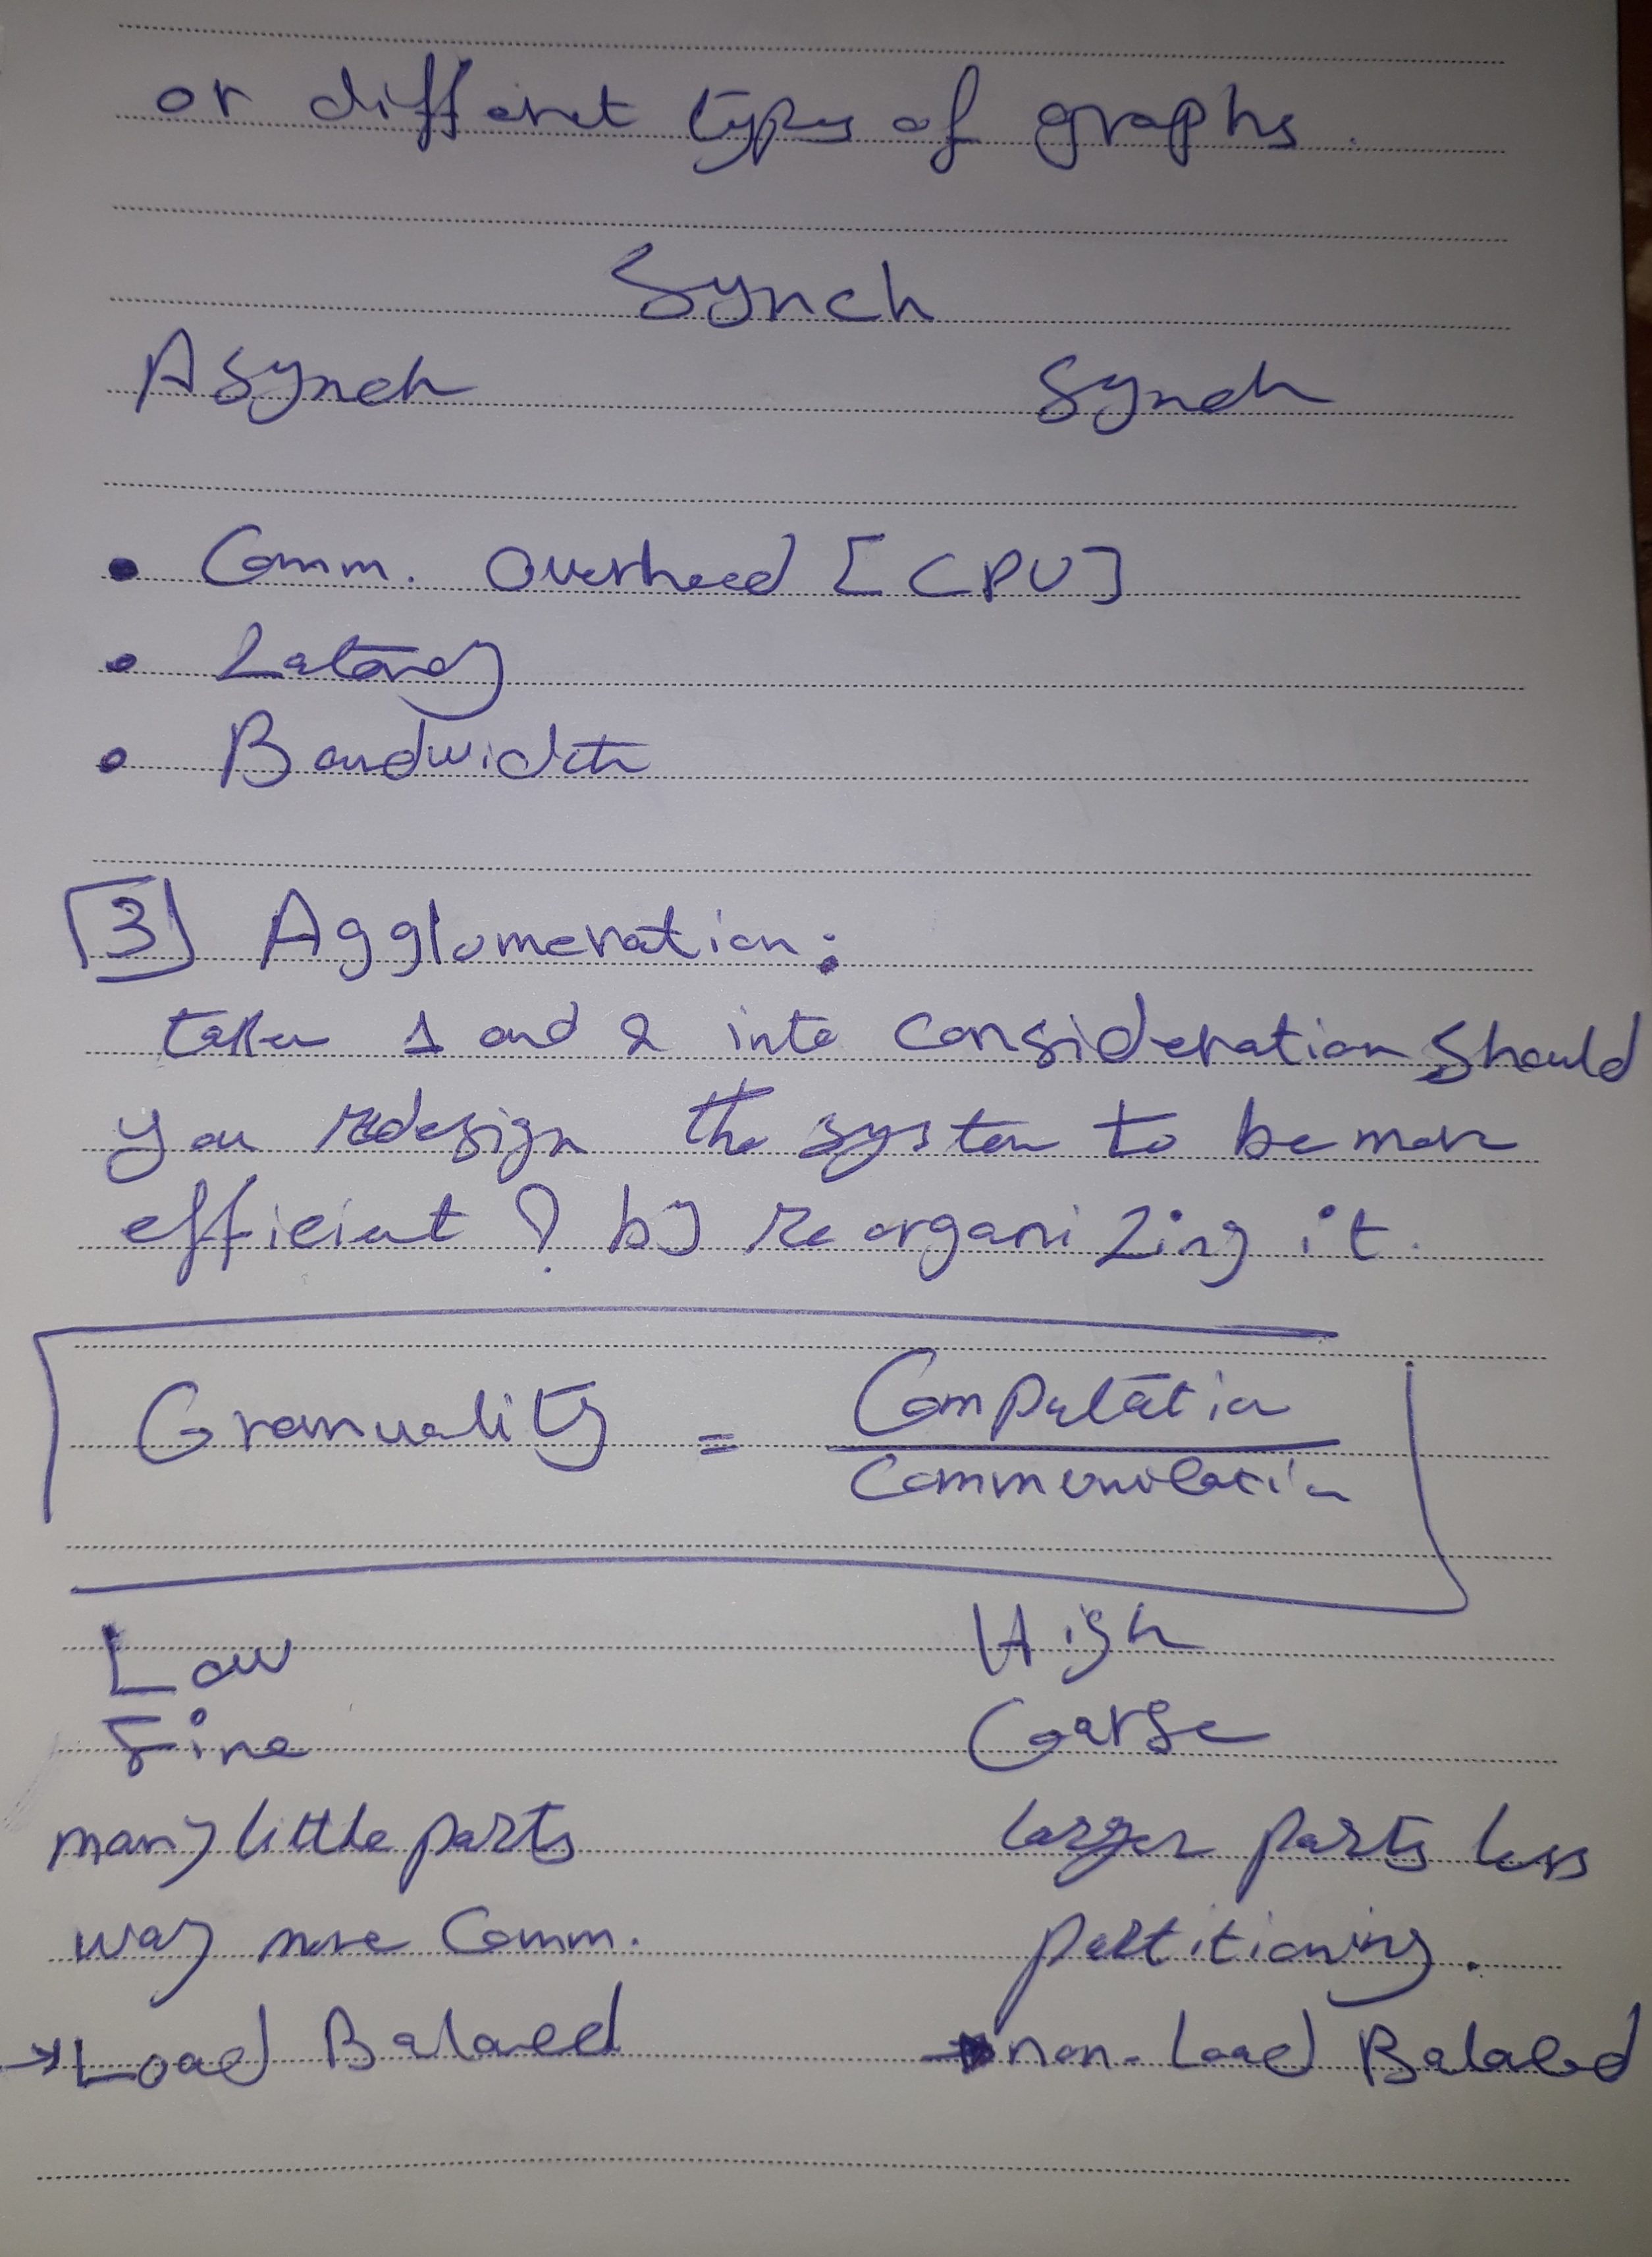 or different types of graphs.
Synch
Asynch Synch
• Comm. Overhead [CPU]
• Latency
• Bandwidth
[3] Agglomeration:
taken 1 and 2 into consideration should
you redesign the system to be more
efficient ? by reorganizing it.
Granuality = Computation
Communication
Low High
Fine Coarse
many little parts larger parts less
way more Comm. partitioning.
→ Load Balaced → non-Load Balaced